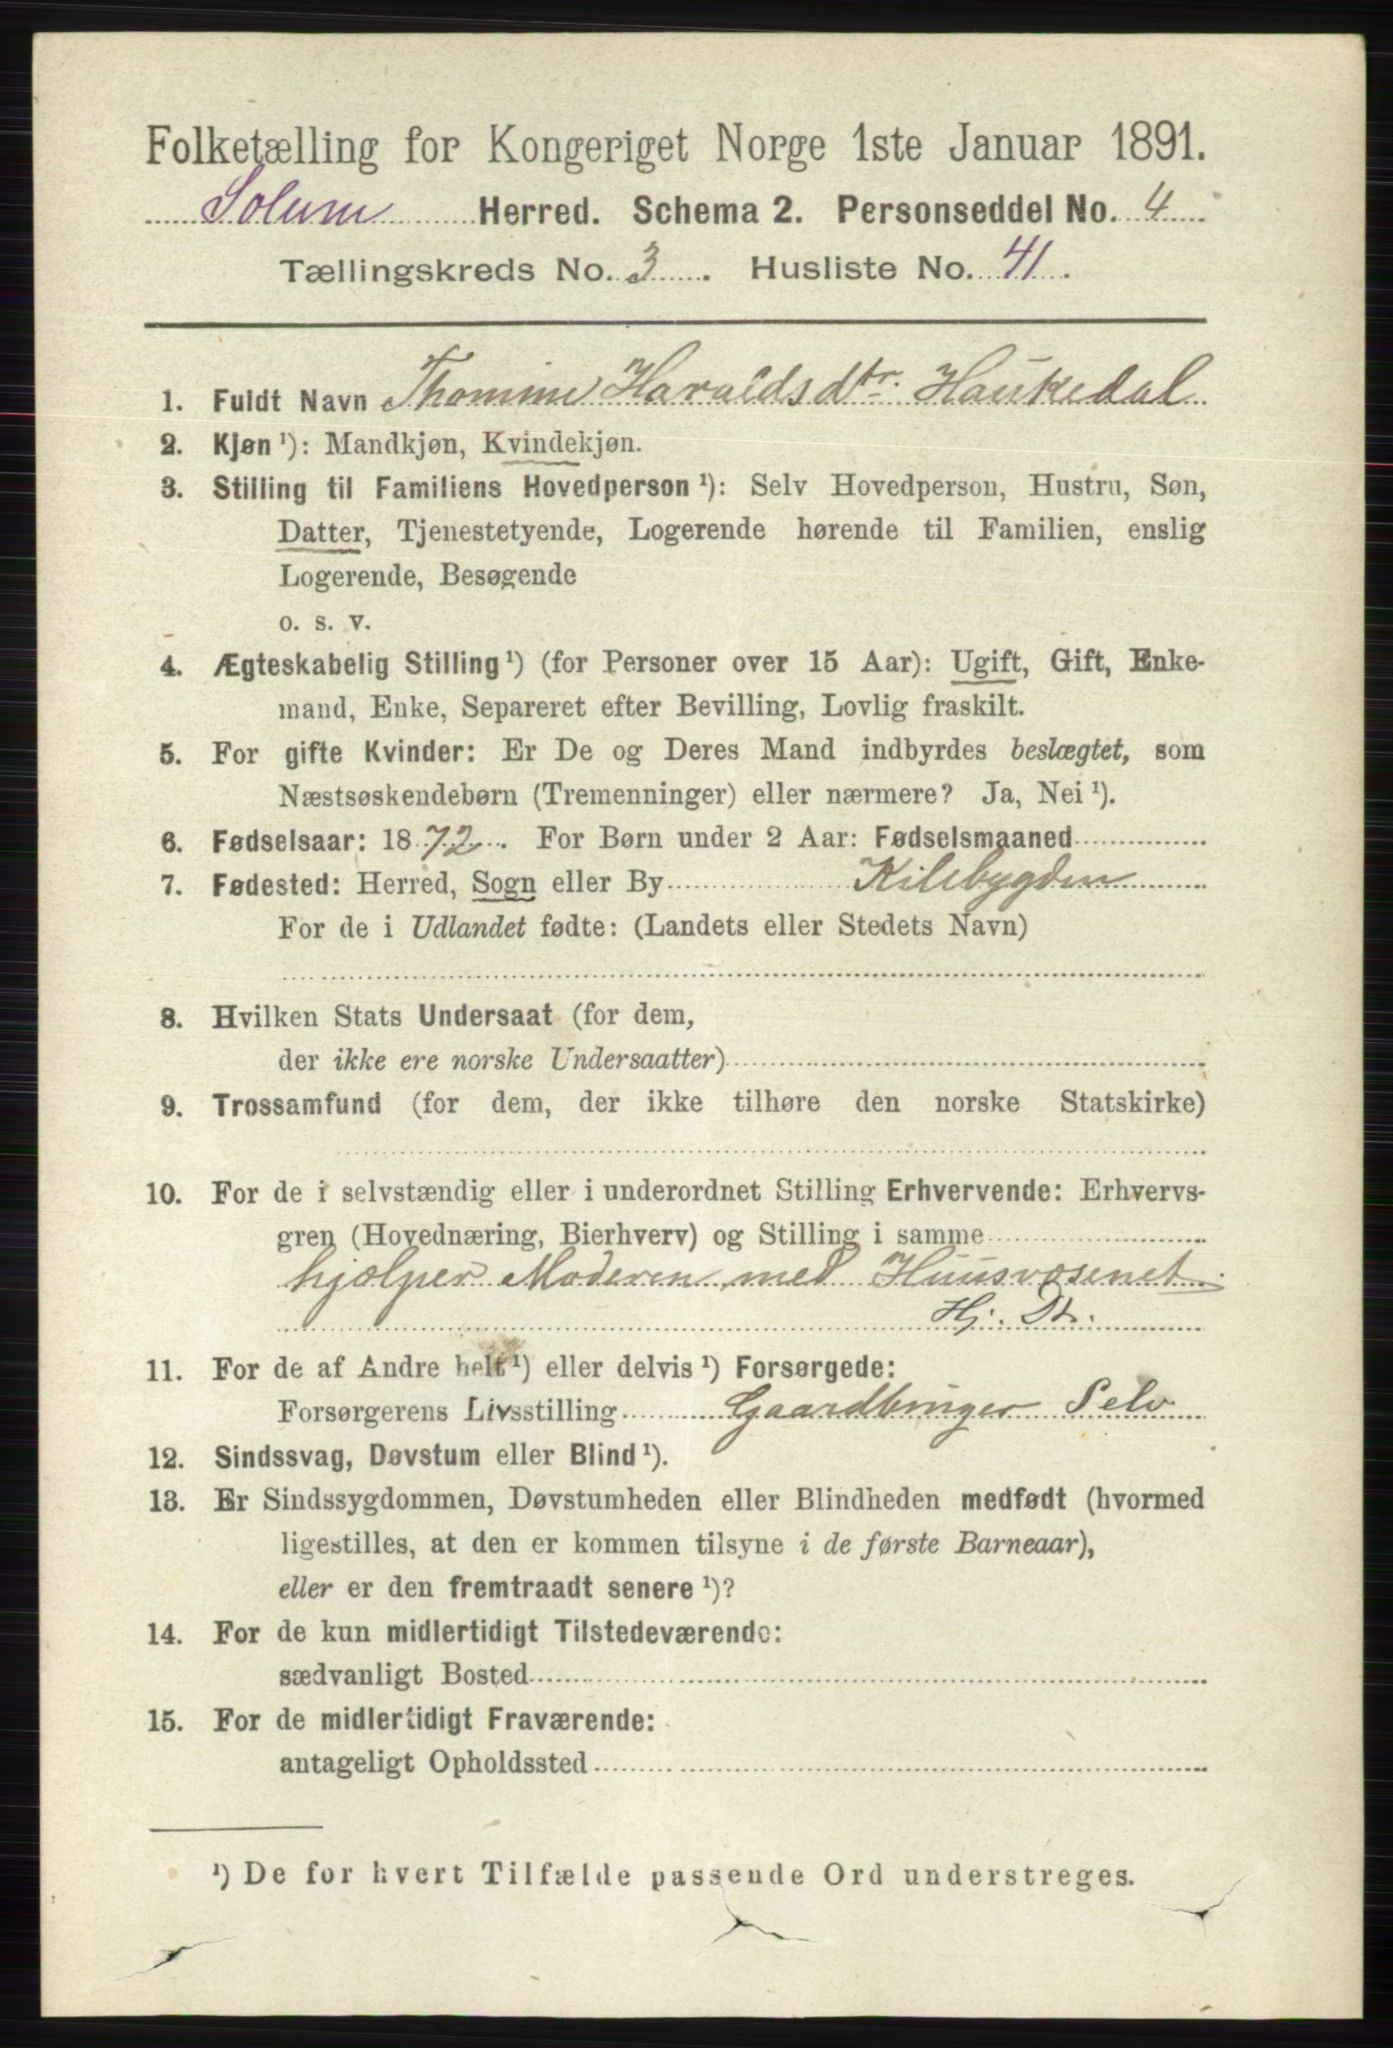 Folketælling for Kongeriget Norge 1ste Januar 1891.
Solum Herred. Schema 2. Personseddel No. 4
Tællingskreds No. 3. Husliste No. 41.
1. Fuldt Navn Thomine Haraldsdtr. Haukedal
2. Kjøn ¹): Mandkjøn, Kvindekjøn.
3. Stilling til Familiens Hovedperson ¹): Selv Hovedperson, Hustru, Søn,
Datter, Tjenestetyende, Logerende hørende til Familien, enslig
Logerende, Besøgende
o. s. v.
4. Ægteskabelig Stilling ¹) (for Personer over 15 Aar): Ugift, Gift, Enke-
mand, Enke, Separeret efter Bevilling, Lovlig fraskilt.
5. For gifte Kvinder: Er De og Deres Mand indbyrdes beslægtet, som
Næstsøskendebørn (Tremenninger) eller nærmere? Ja, Nei ¹).
6. Fødselsaar: 1872. For Børn under 2 Aar: Fødselsmaaned
7. Fødested: Herred, Sogn eller By Kilebygden
For de i Udlandet fødte: (Landets eller Stedets Navn)
8. Hvilken Stats Undersaat (for dem,
der ikke ere norske Undersaatter)
9. Trossamfund (for dem, der ikke tilhøre den norske Statskirke)
10. For de i selvstændig eller i underordnet Stilling Erhvervende: Erhvervs-
gren (Hovednæring, Bierhverv) og Stilling i samme
hjælper Moderen med Huusvæsenet
Hj. Dt.
11. For de af Andre helt ¹) eller delvis ¹) Forsørgede:
Forsørgerens Livsstilling Gaardbruger Selv
12. Sindssvag, Døvstum eller Blind ¹).
13. Er Sindssygdommen, Døvstumheden eller Blindheden medfødt (hvormed
ligestilles, at den er kommen tilsyne i de første Barneaar),
eller er den fremtraadt senere ¹)?
14. For de kun midlertidigt Tilstedeværende:
sædvanligt Bosted
15. For de midlertidigt Fraværende:
antageligt Opholdssted
¹) De for hvert Tilfælde passende Ord understreges.